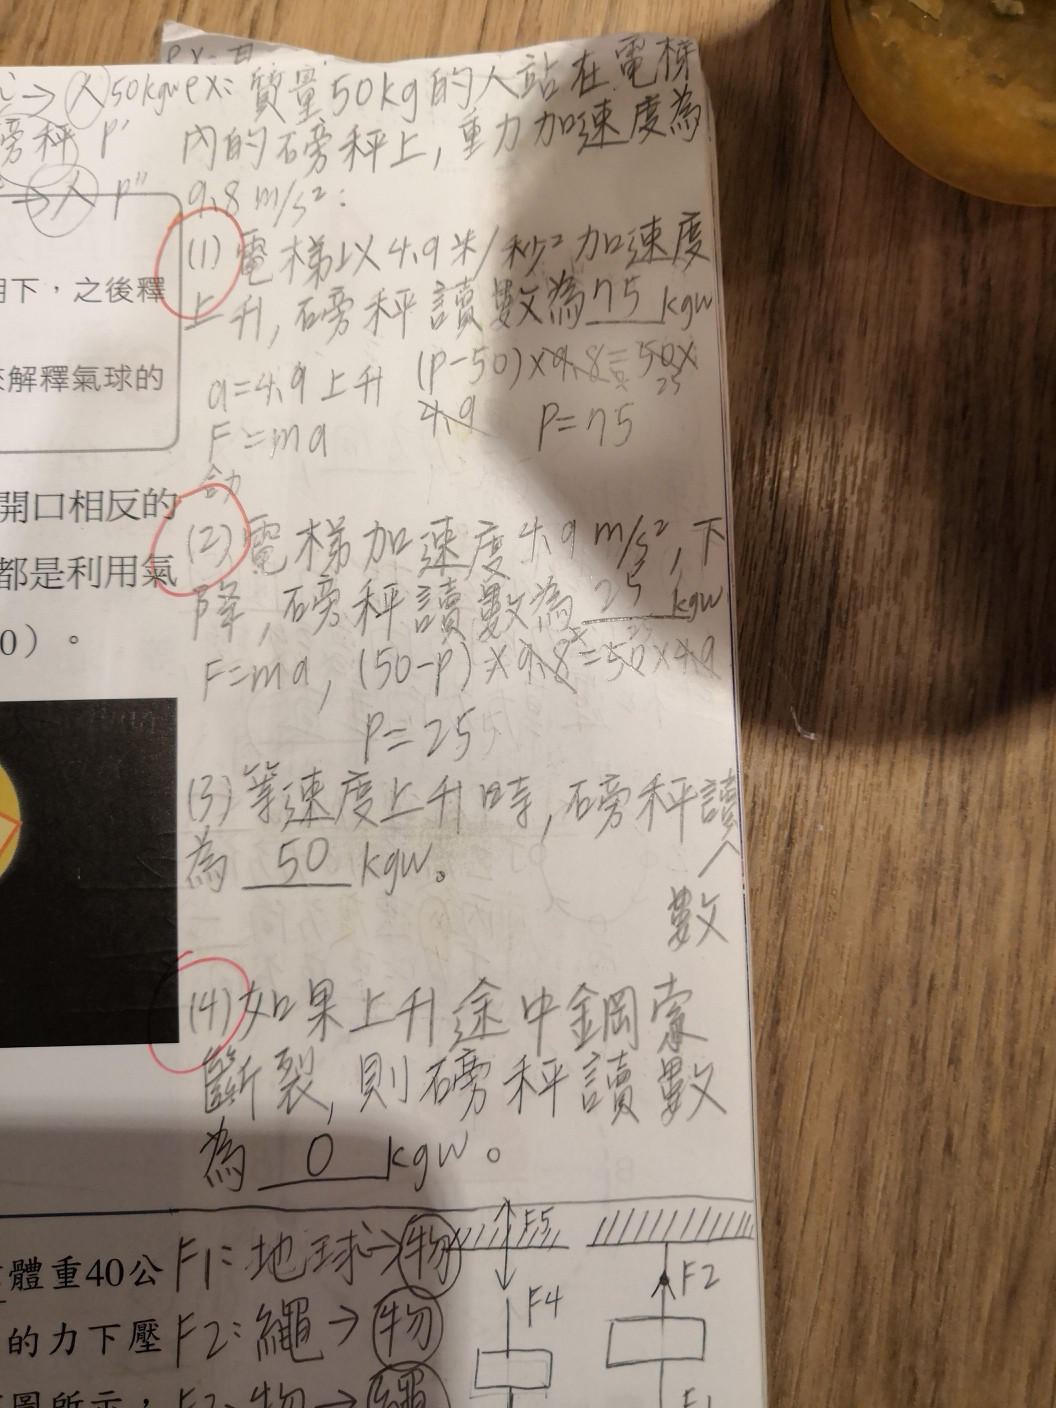 →人50kgw ex: 質量50kg的人站在電梯
磅秤 P' 內的磅秤上,重力加速度為
→人 P" 9.8 m/s²:
(1)電梯以4.9米/秒²加速度
下,之後釋
上升,磅秤讀數為75 kgw
來解釋氣球的
a=4.9上升 (P-50)×9.8=50×
25
4.9 P=75
F=ma
合力
開口相反的
(2)電梯加速度4.9 m/s²,下
都是利用氣
降,磅秤讀數為 25 kgw
0)。
F=ma, (50-P)×9.8=50×4.9
P=25
(3)等速度上升時,磅秤讀
數
為 50 kgw。
(4)如果上升途中鋼索
斷裂,則磅秤讀數
為 0 kgw。
體重40公 F1:地球→物 F5
F2
的力下壓 F2:繩→物 F4
圖所示, F3:物→繩 F1